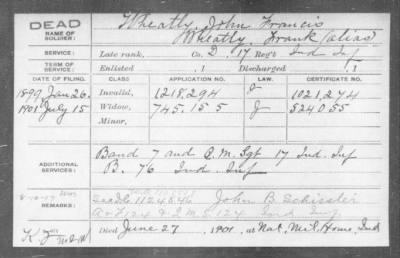 DEAD
NAME OF SOLDIER:
Wheatly, John Francis
Wheatly, Frank (alias)
SERVICE: Late rank, Co. D, 17 Reg't Ind Inf
TERM OF SERVICE: Enlisted , 1 Discharged , 1
DATE OF FILING. CLASS. APPLICATION NO. LAW. CERTIFICATE NO.
1899 Jan 26. Invalid, 1218,294 1021,274
1901 July 15 Widow, 745,155 524055
Minor,
ADDITIONAL SERVICES:
Band 7 and Q.M. Sgt 17 Ind. Inf
B. 76 Ind. Inf
REMARKS:
1124546 John B Schissler
124 Ind Inf
Died June 27, 1901, at Nat. Mil. Home, Ind